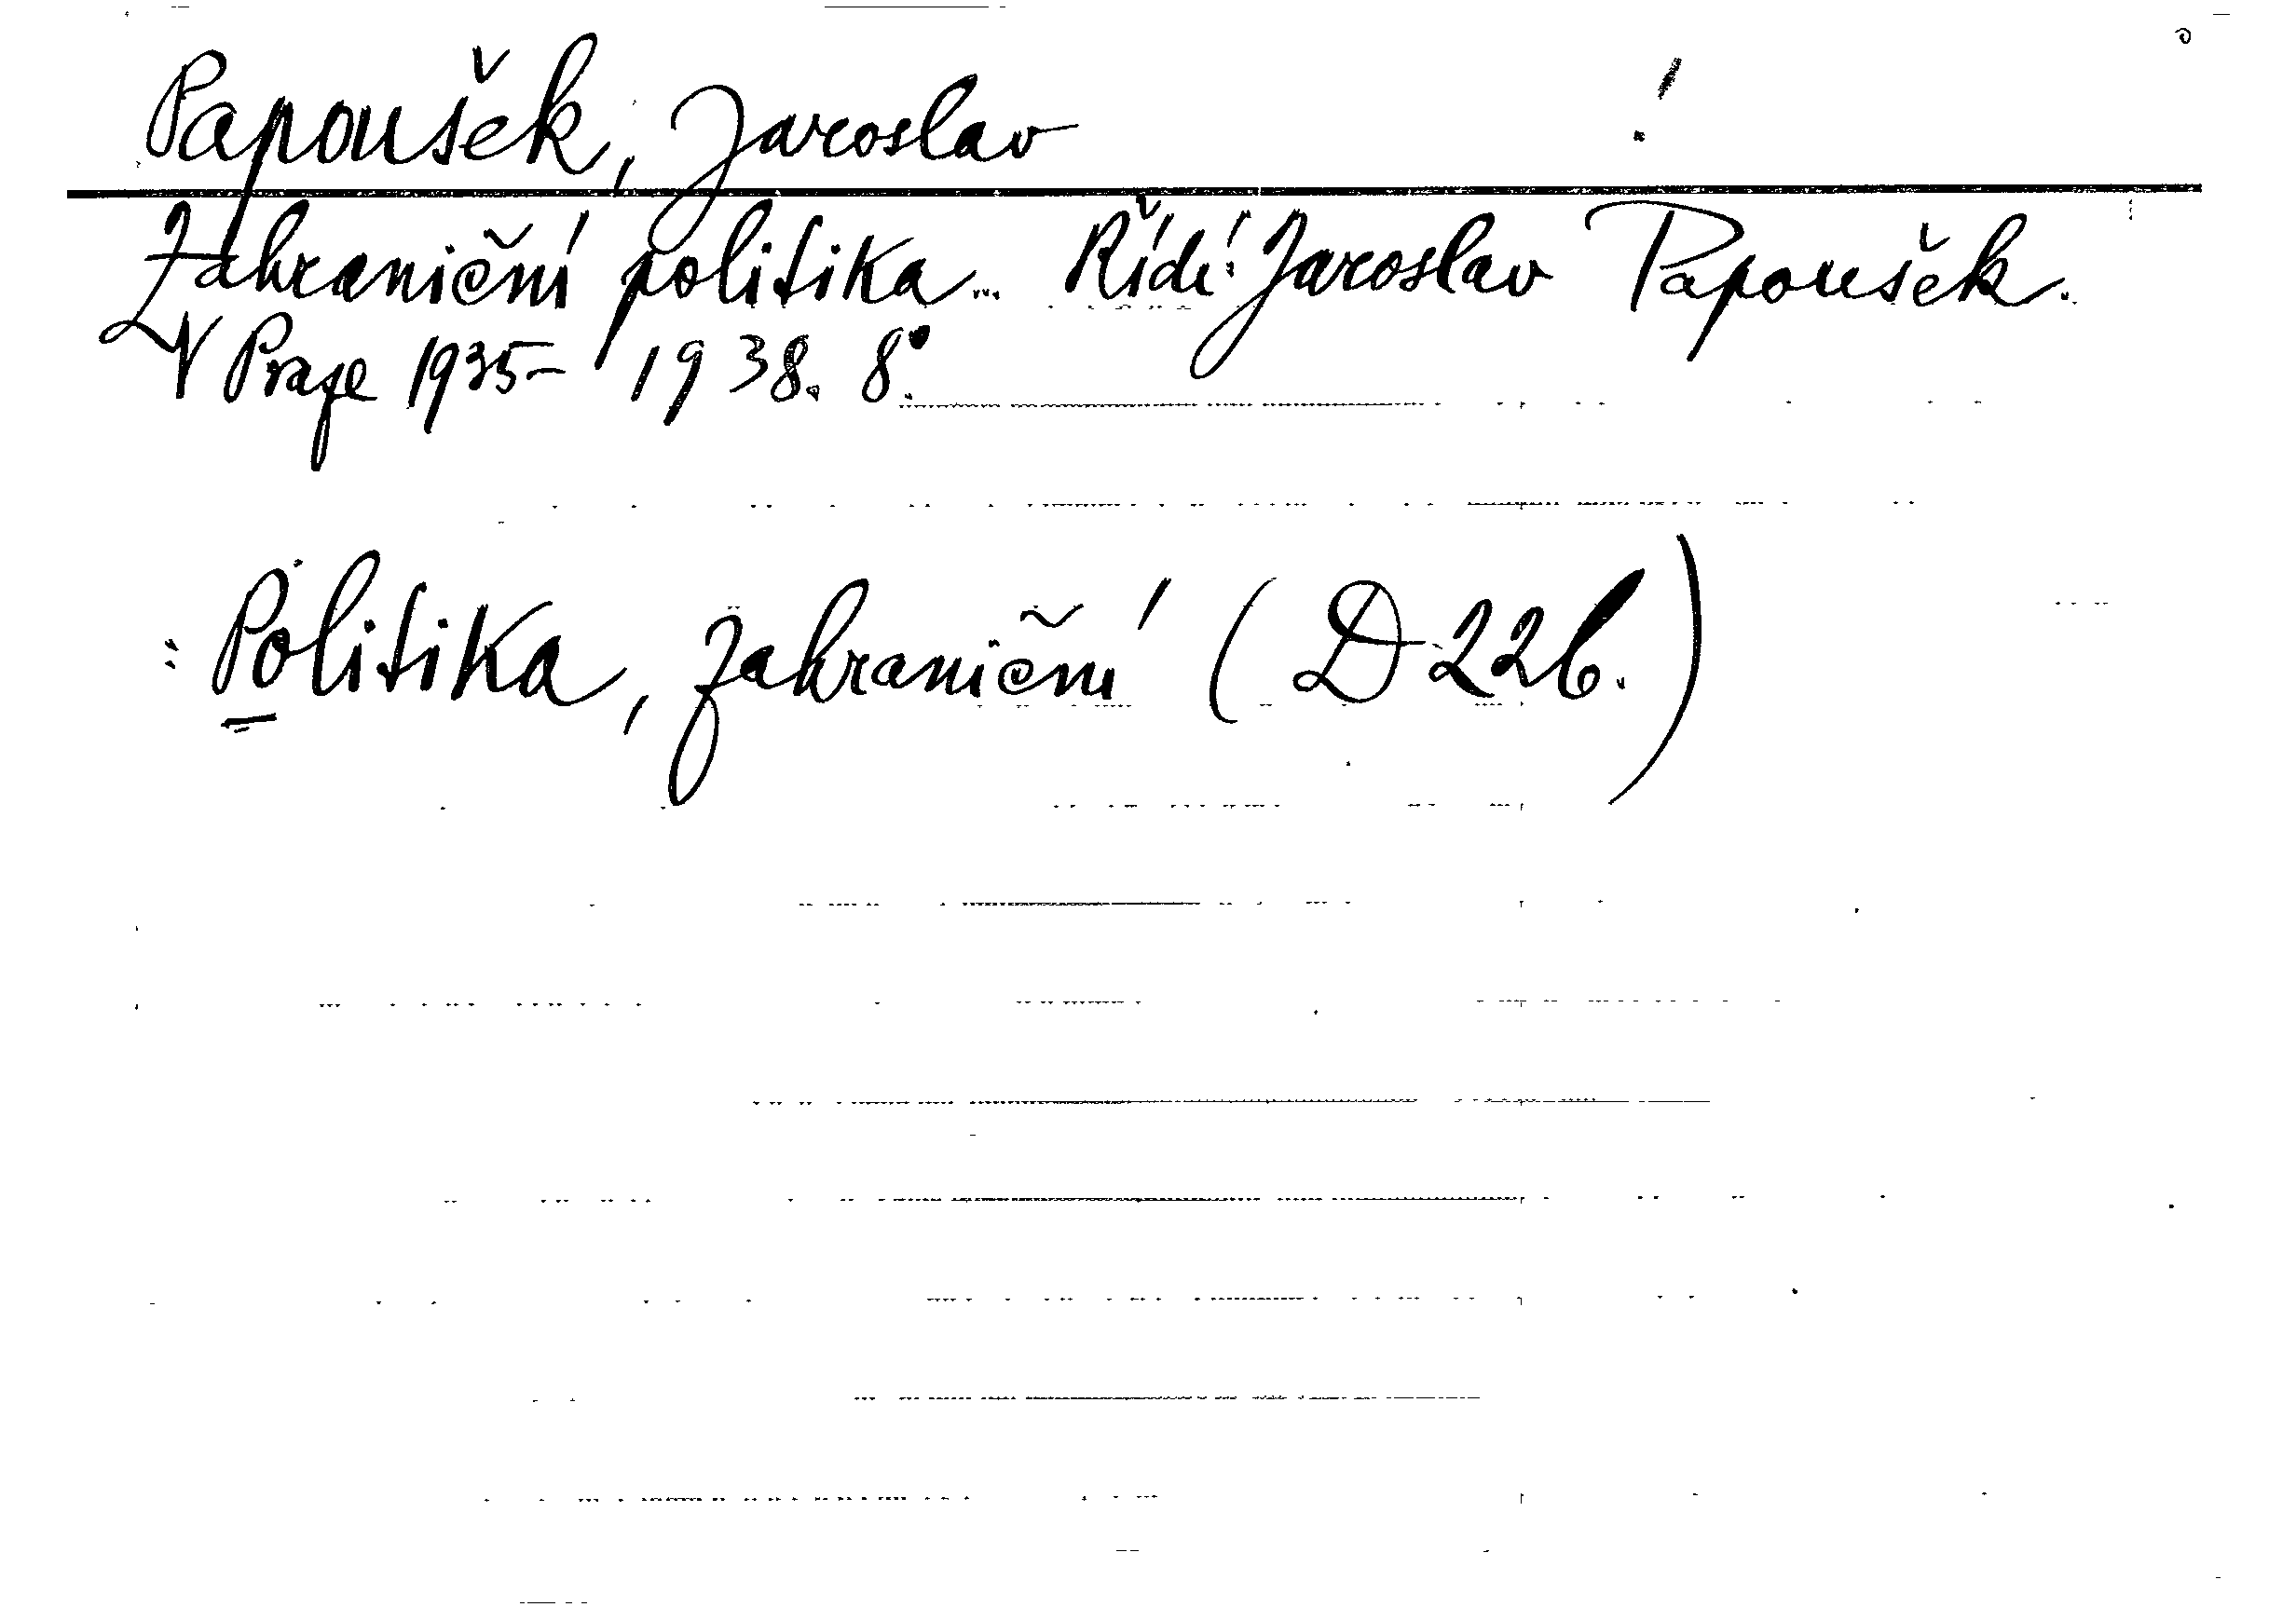 Papoušek, Jaroslav !
Zahraniční politika... Řídí: Jaroslav Papoušek.
V Praze 1935-1938. 8°.
: Politika, zahraniční (D 22b.)